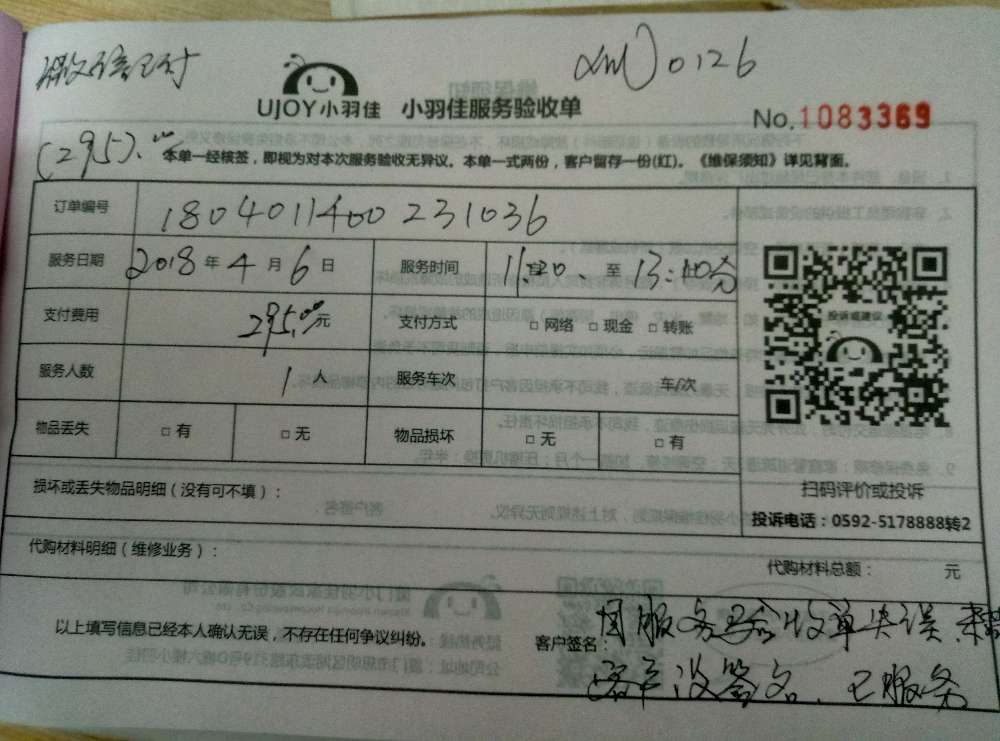 微信已付
XM0126
UJOY小羽佳 小羽佳服务验收单
No. 1083369
(295).00
本单一经核签，即视为对本次服务验收无异议。本单一式两份，客户留存一份(红)。《维保须知》详见背面。
订单编号 1804011400231036
服务日期 2018年4月6日 服务时间 11:20 至 13:40分
支付费用 295.00元 支付方式 □网络 □现金 □转账
投诉或建议
服务人数 1人 服务车次 车/次
物品丢失 □有 □无 物品损坏 □无 □有
扫码评价或投诉
损坏或丢失物品明细（没有可不填）：
投诉电话：0592-5178888转2
代购材料明细（维修业务）：
代购材料总额： 元
以上填写信息已经本人确认无误，不存在任何争议纠纷。
客户签名：因服务验收单失误
客户没签名、已服务